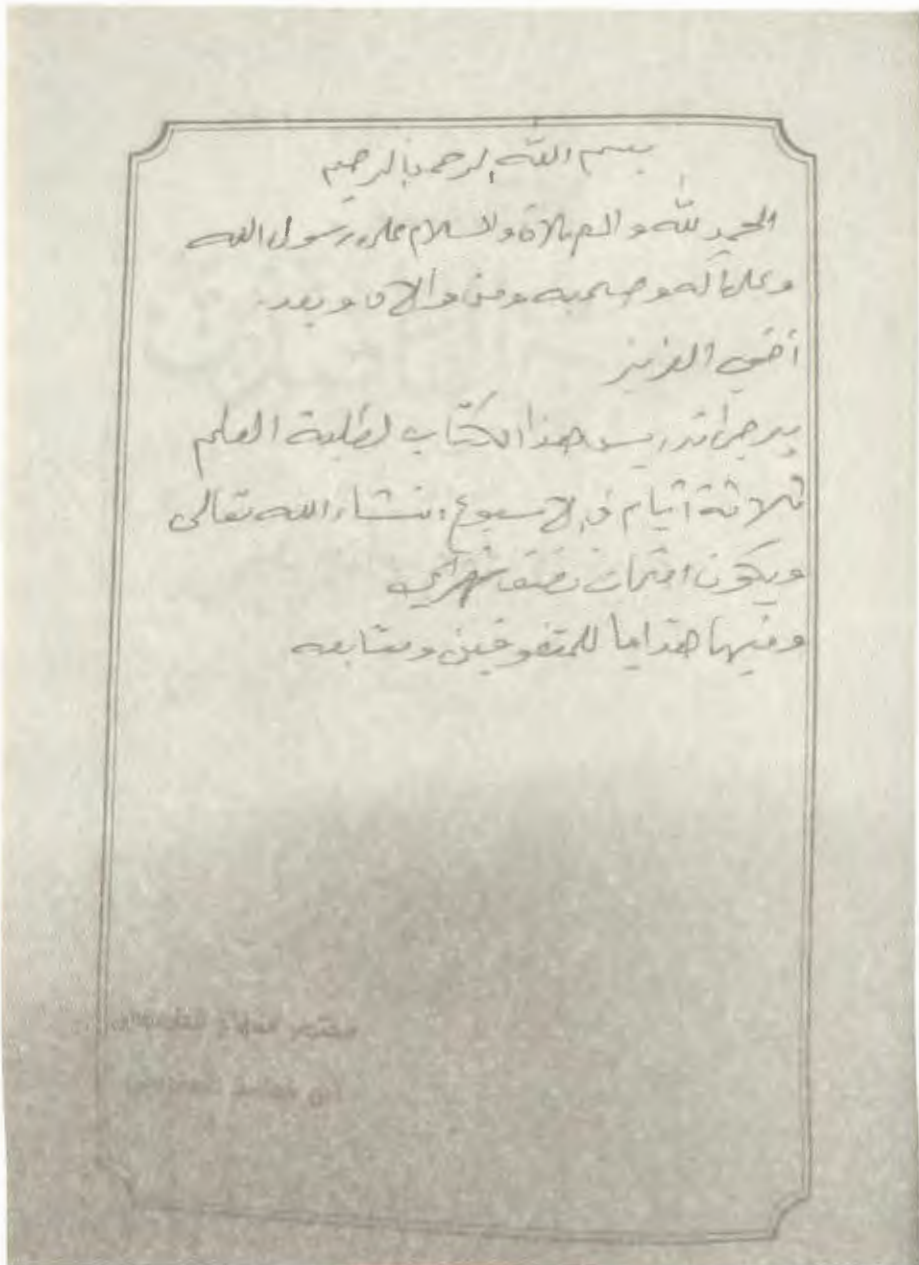 بسم الله الرحمن الرحيم
الحمد لله والصلاة والسلام على رسول الله
وعلى آله وصحبه ومن والاه وبعد
أخي العزيز
يرجى تدريس هذا الكتاب لطلبة العلم
ثلاثة أيام في الاسبوع انشاء الله تعالى
ويكون امتحان نصف
وفيها هدايا للمتفوقين ومتابعه